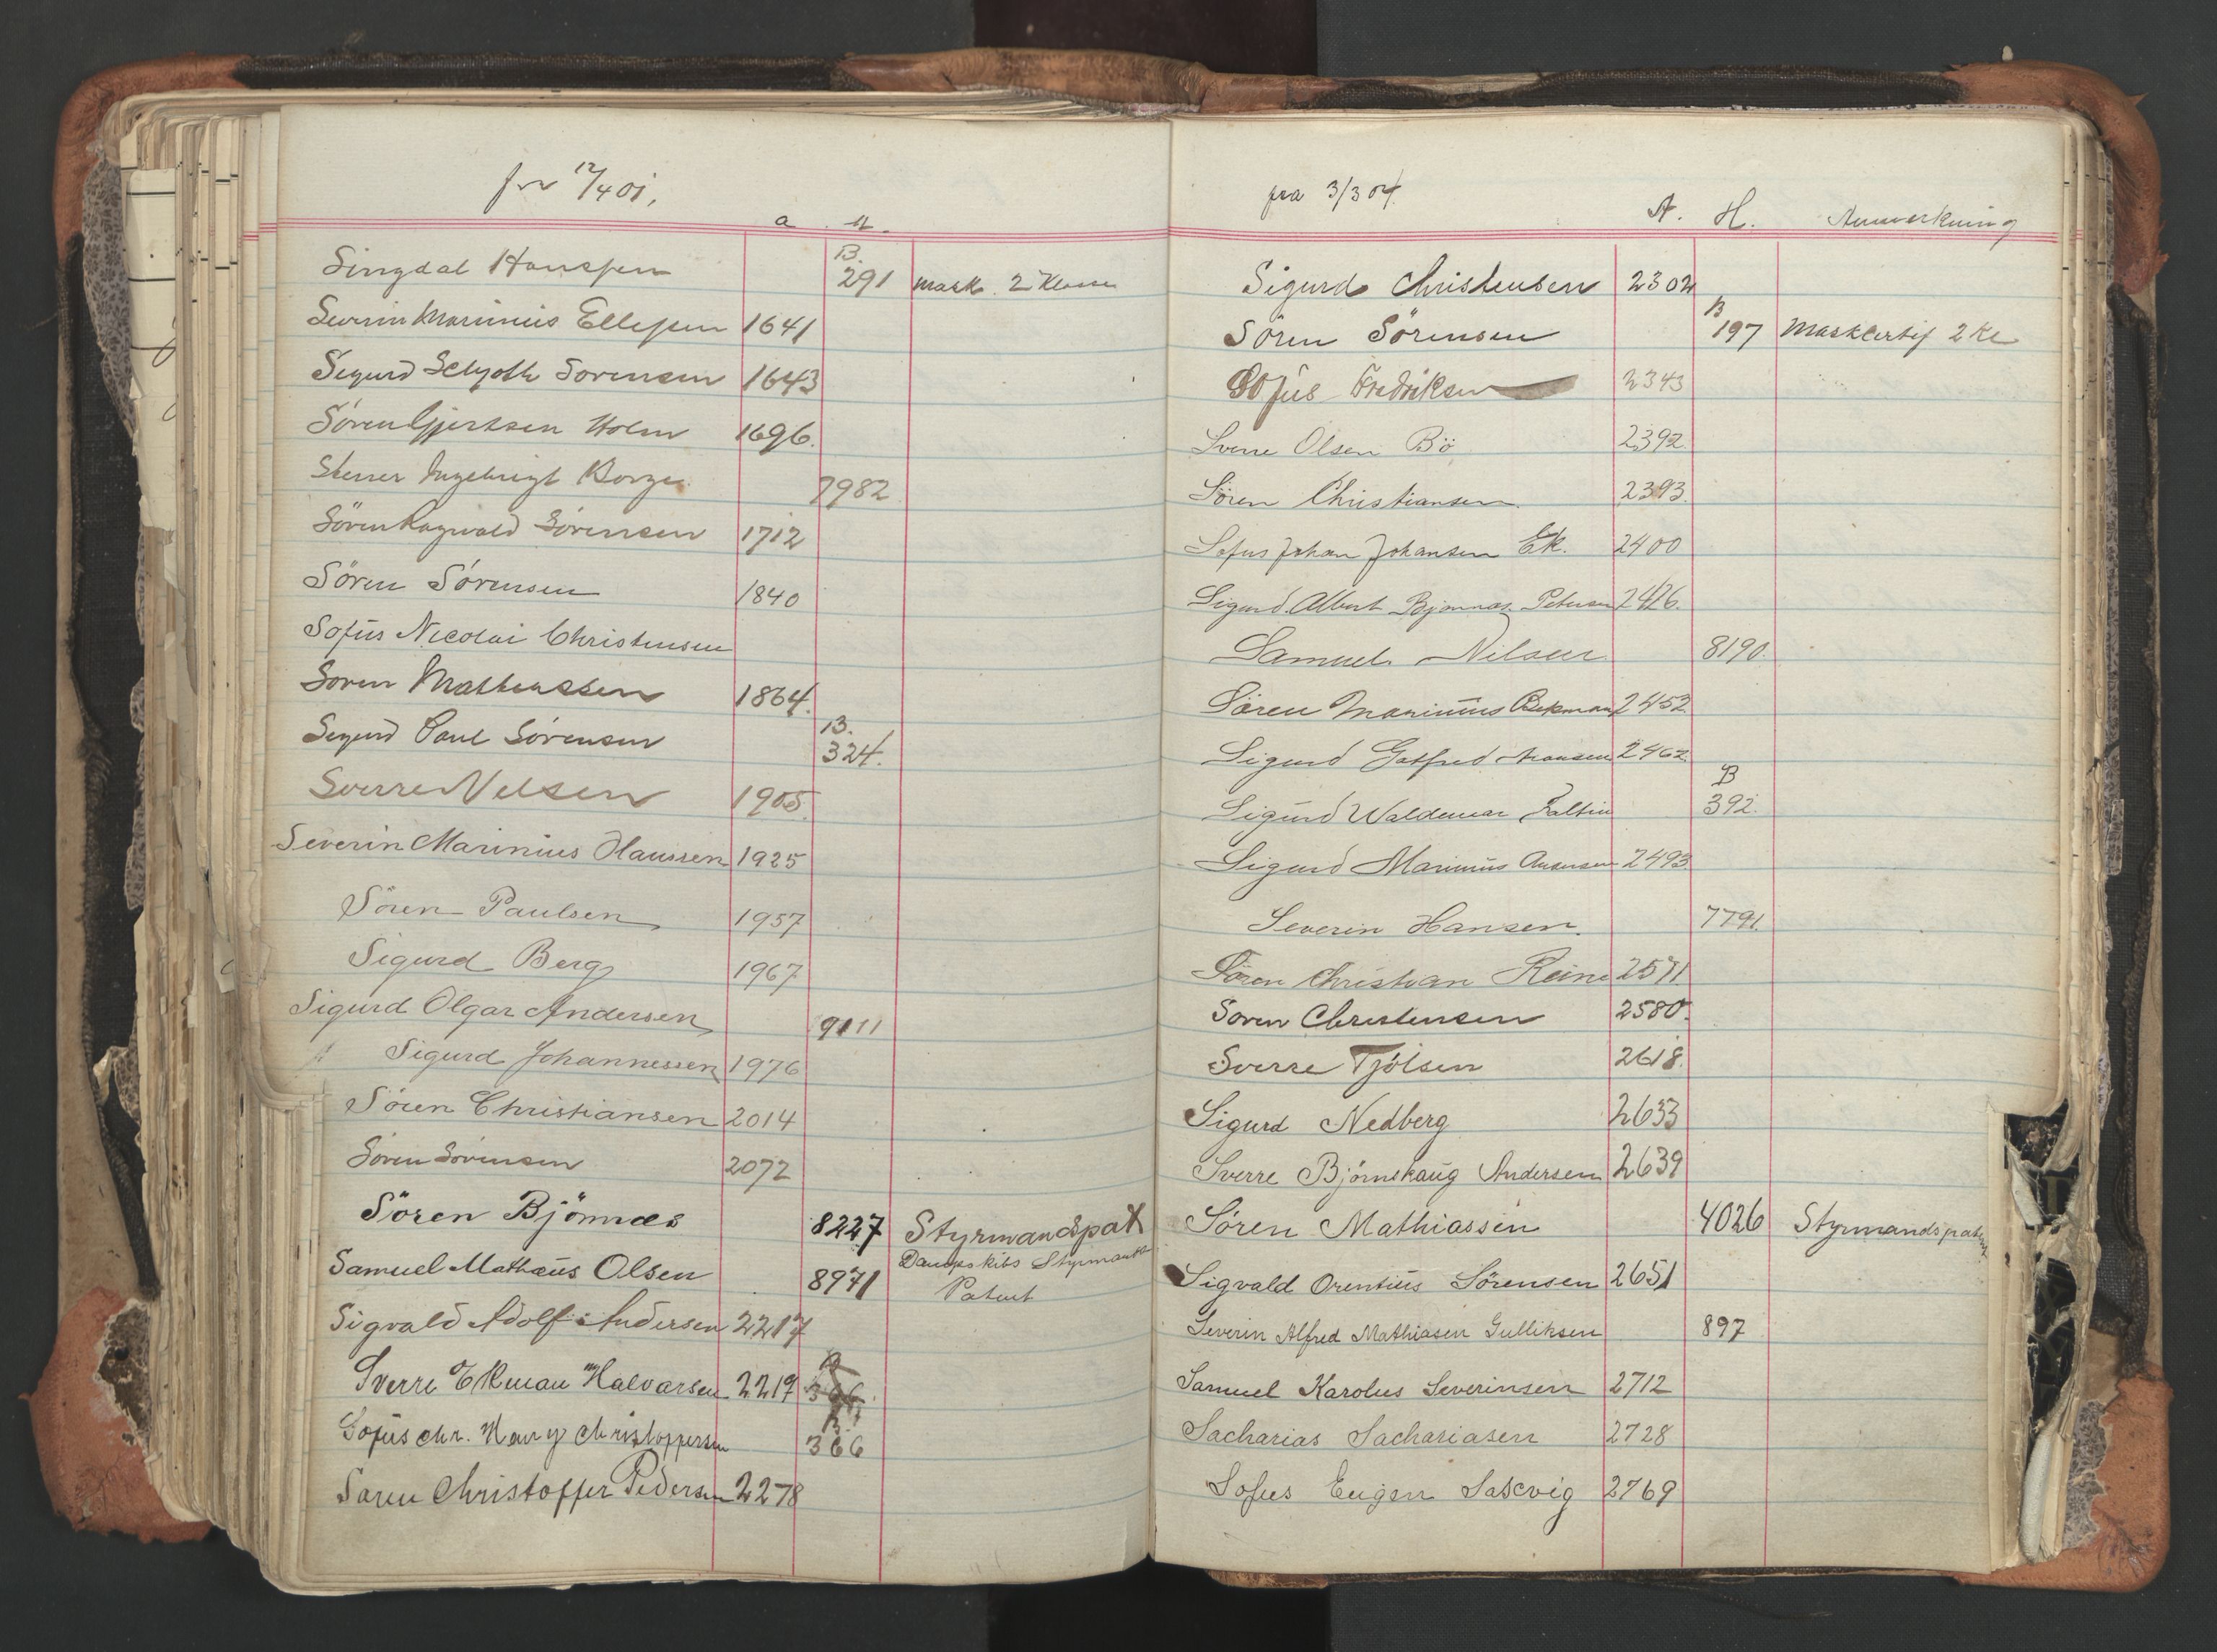 fra 12/4 01,
a H.
Singdal Hanssen B. 291 mask. 2 Klasse
Severin Marinius Ellefsen 1641
Sigurd Sorensen 1643
Sören Gjertsen Holm 1696.
Ingebrigt 7982
Sören Ragnvald Sörensen 1712
Sören Sörensen 1840
Sofus Nicolai Christensen
Soren Mathiassen 1864.
Sigurd Paul Sörensen B. 324.
Sverre Nelsen 1905.
Severin Marinius Hanssen 1925
Sören Paulsen 1957
Sigurd Berg 1967
Sigurd Olgar Andersen 9111
Sigurd Johannessen 1976
Sören Christiansen 2014
Sören Sörensen 2072
Sören Björnnæs 8227 Styrmandspat
Samuel Mathæus Olsen 8971 Dampskibs Styrmands
Patent
Sigvald Adolf Andersen 2217
Sverre Halvorsen 2219
Sofus Chr. Christoffersen B. 366
Sören Christoffer Pedersen 2278
fra 3/3 04.
A. H. Anmerkning
Sigurd Christensen 2302
Sören Sörensen B 197 Maskcertif 2 Kl
Sofus Fredriksen 2343
Sverre Olsen Bö 2392.
Sören Christiansen. 2393.
Sofus Johan Johansen Ek. 2400
Sigurd Albert Petersen 2426.
Samuel Nilsen 8190.
Sören Marinius 2452
Sigurd Gotfred 2462
Sigurd Waldemar Faltin B 392.
Sigurd Marinius 2493.
Severin Hansen. 7791.
Sören Christian Reine 2571
Soren Christensen 2580.
Sverre Tjölsen 2618.
Sigurd Nedberg 2633
Sverre Björnskaug Andersen 2639
Sören Mathiassen 4026 Styrmandspatent
Sigvald Orentius Sörensen 2651
Severin Alfred Mathiasen Gulliksen 897
Samuel Karolus Severinsen 2712
Sacharias Sachariasen 2728
Sofus Eugen 2769